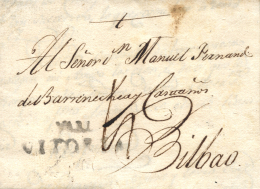 Al Señor Dn Manuel Fernand
de Barrenechea y Castaños
VITORIA
Bilbao.